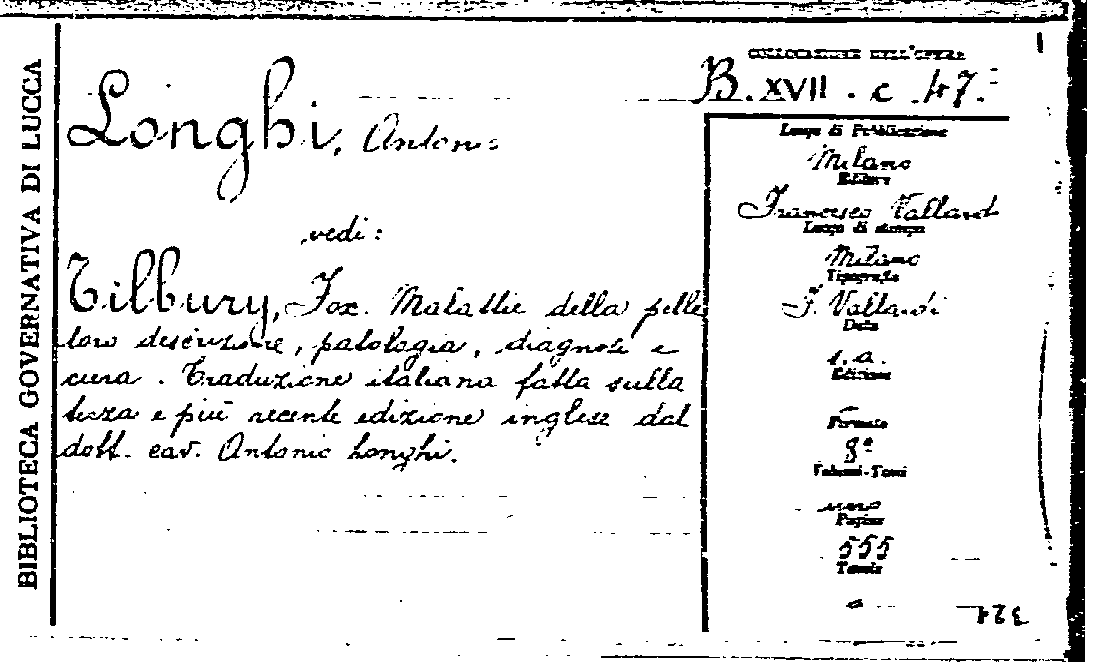 BIBLIOTECA GOVERNATIVA DI LUCCA
COLLOCAZIONE DELL'OPERA
B. XVII. c. 47.
Longhi, Antonio
vedi:
Tilbury, Fox. Malattie della pelle
loro descrizione, patologia, diagnosi e
cura. Traduzione italiana fatta sulla
terza e più recente edizione inglese dal
dott. cav. Antonio Longhi.
Luogo di Pubblicazione
Milano
Editore
Francesco Vallardi
Luogo di stampa
Milano
Tipografia
F. Vallardi
Data
s.a.
Edizione
Formato
8º
Volumi-Tomi
uno
Pagine
555
Tavole